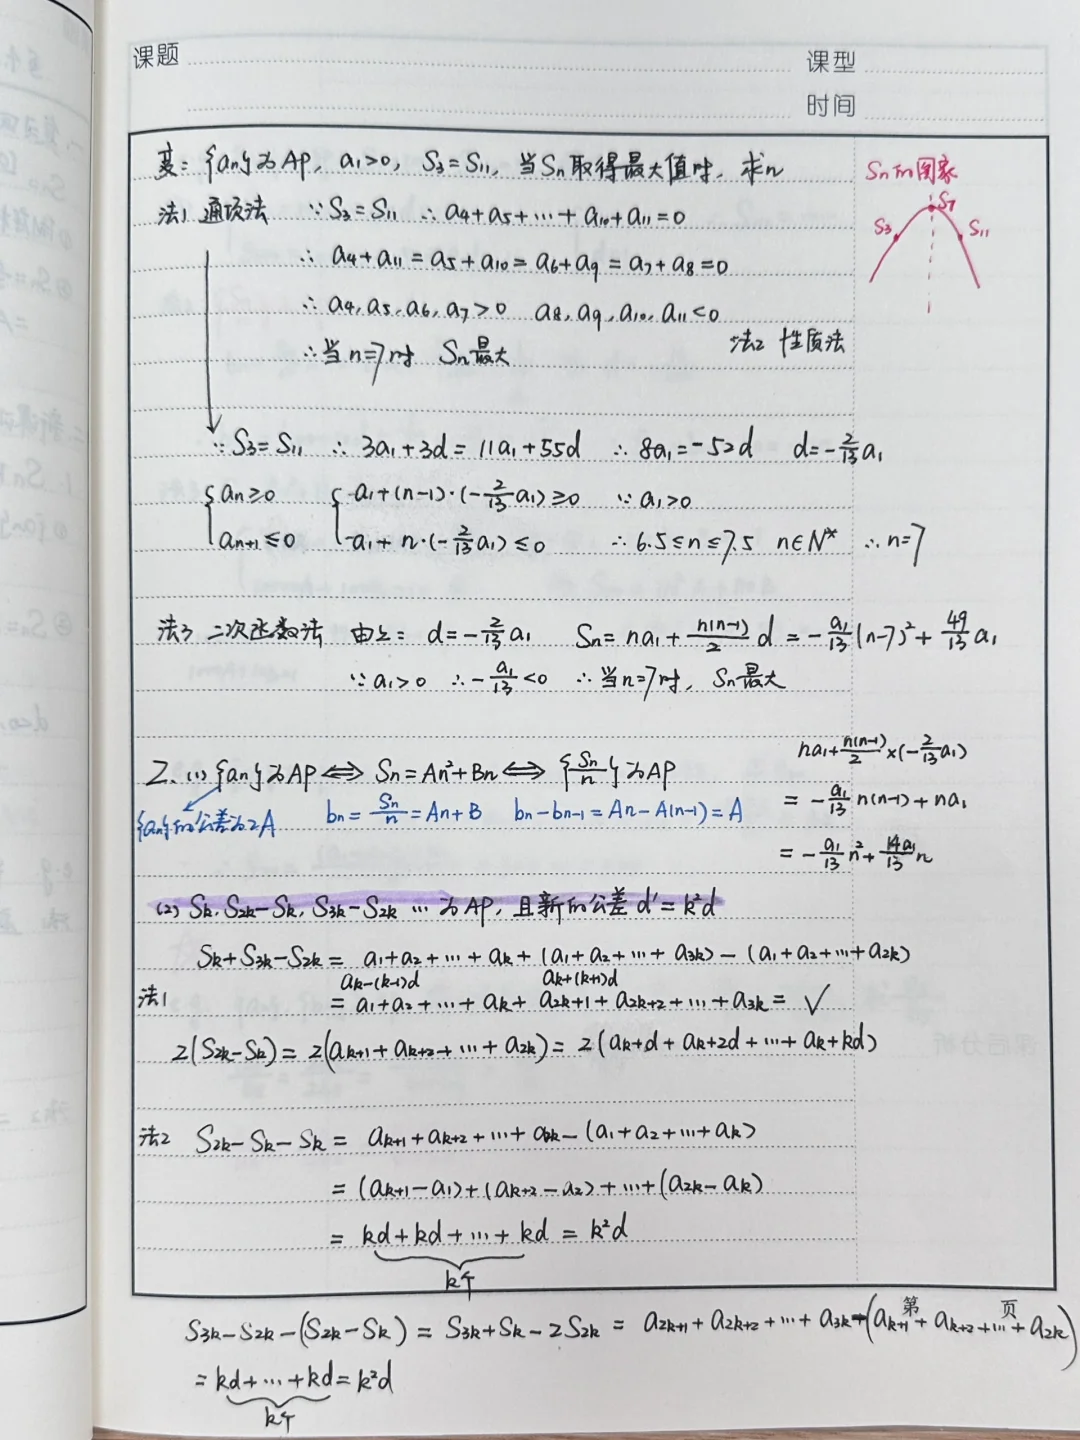 课题
课型
时间
变: {an}为AP, a₁>0, S₃=S₁₁, 当Sn取得最大值时, 求n
Sn的图象
S₇
S₃
S₁₁
法1 通项法 ∵S₃=S₁₁ ∴a₄+a₅+…+a₁₀+a₁₁=0
∴ a₄+a₁₁=a₅+a₁₀=a₆+a₉=a₇+a₈=0
∴ a₄,a₅,a₆,a₇>0 a₈,a₉,a₁₀,a₁₁<0
∴当n=7时 Sn最大
法2 性质法
∵S₃=S₁₁ ∴ 3a₁+3d=11a₁+55d ∴ 8a₁=-52d d=-2/13 a₁
{an≥0 {a₁+(n-1)·(-2/13 a₁)≥0 ∵ a₁>0
an+1≤0 a₁+n·(-2/13 a₁)≤0 ∴ 6.5≤n≤7.5 n∈N* ∴n=7
法3 二次函数法 由上: d=-2/13 a₁ Sn=na₁+n(n-1)/2 d=-a₁/13 (n-7)²+49/13 a₁
∵a₁>0 ∴-a₁/13<0 ∴当n=7时, Sn最大
na₁+n(n-1)/2×(-2/13 a₁)
=-a₁/13 n(n-1)+na₁
=-a₁/13 n²+14a₁/13 n
2. (1) {an}为AP⟺Sn=An²+Bn⟺{Sn/n}为AP
{an}的公差为2A bn=Sn/n=An+B bn-bn-1=An-A(n-1)=A
(2) Sk, S2k-Sk, S3k-S2k … 为AP, 且新的公差d'=k²d
Sk+S3k-S2k=a₁+a₂+…+ak+(a₁+a₂+…+a3k)-(a₁+a₂+…+a2k)
ak-(k-1)d ak+(k+1)d
法1 =a₁+a₂+…+ak+a2k+1+a2k+2+…+a3k=✓
2(S2k-Sk)=2(ak+1+ak+2+…+a2k)=2(ak+d+ak+2d+…+ak+kd)
法2 S2k-Sk-Sk=ak+1+ak+2+…+a2k-(a₁+a₂+…+ak)
=(ak+1-a₁)+(ak+2-a₂)+…+(a2k-ak)
=kd+kd+…+kd=k²d
k个
第 页
S3k-S2k-(S2k-Sk)=S3k+Sk-2S2k=a2k+1+a2k+2+…+a3k-(ak+1+ak+2+…+a2k)
=kd+…+kd=k²d
k个